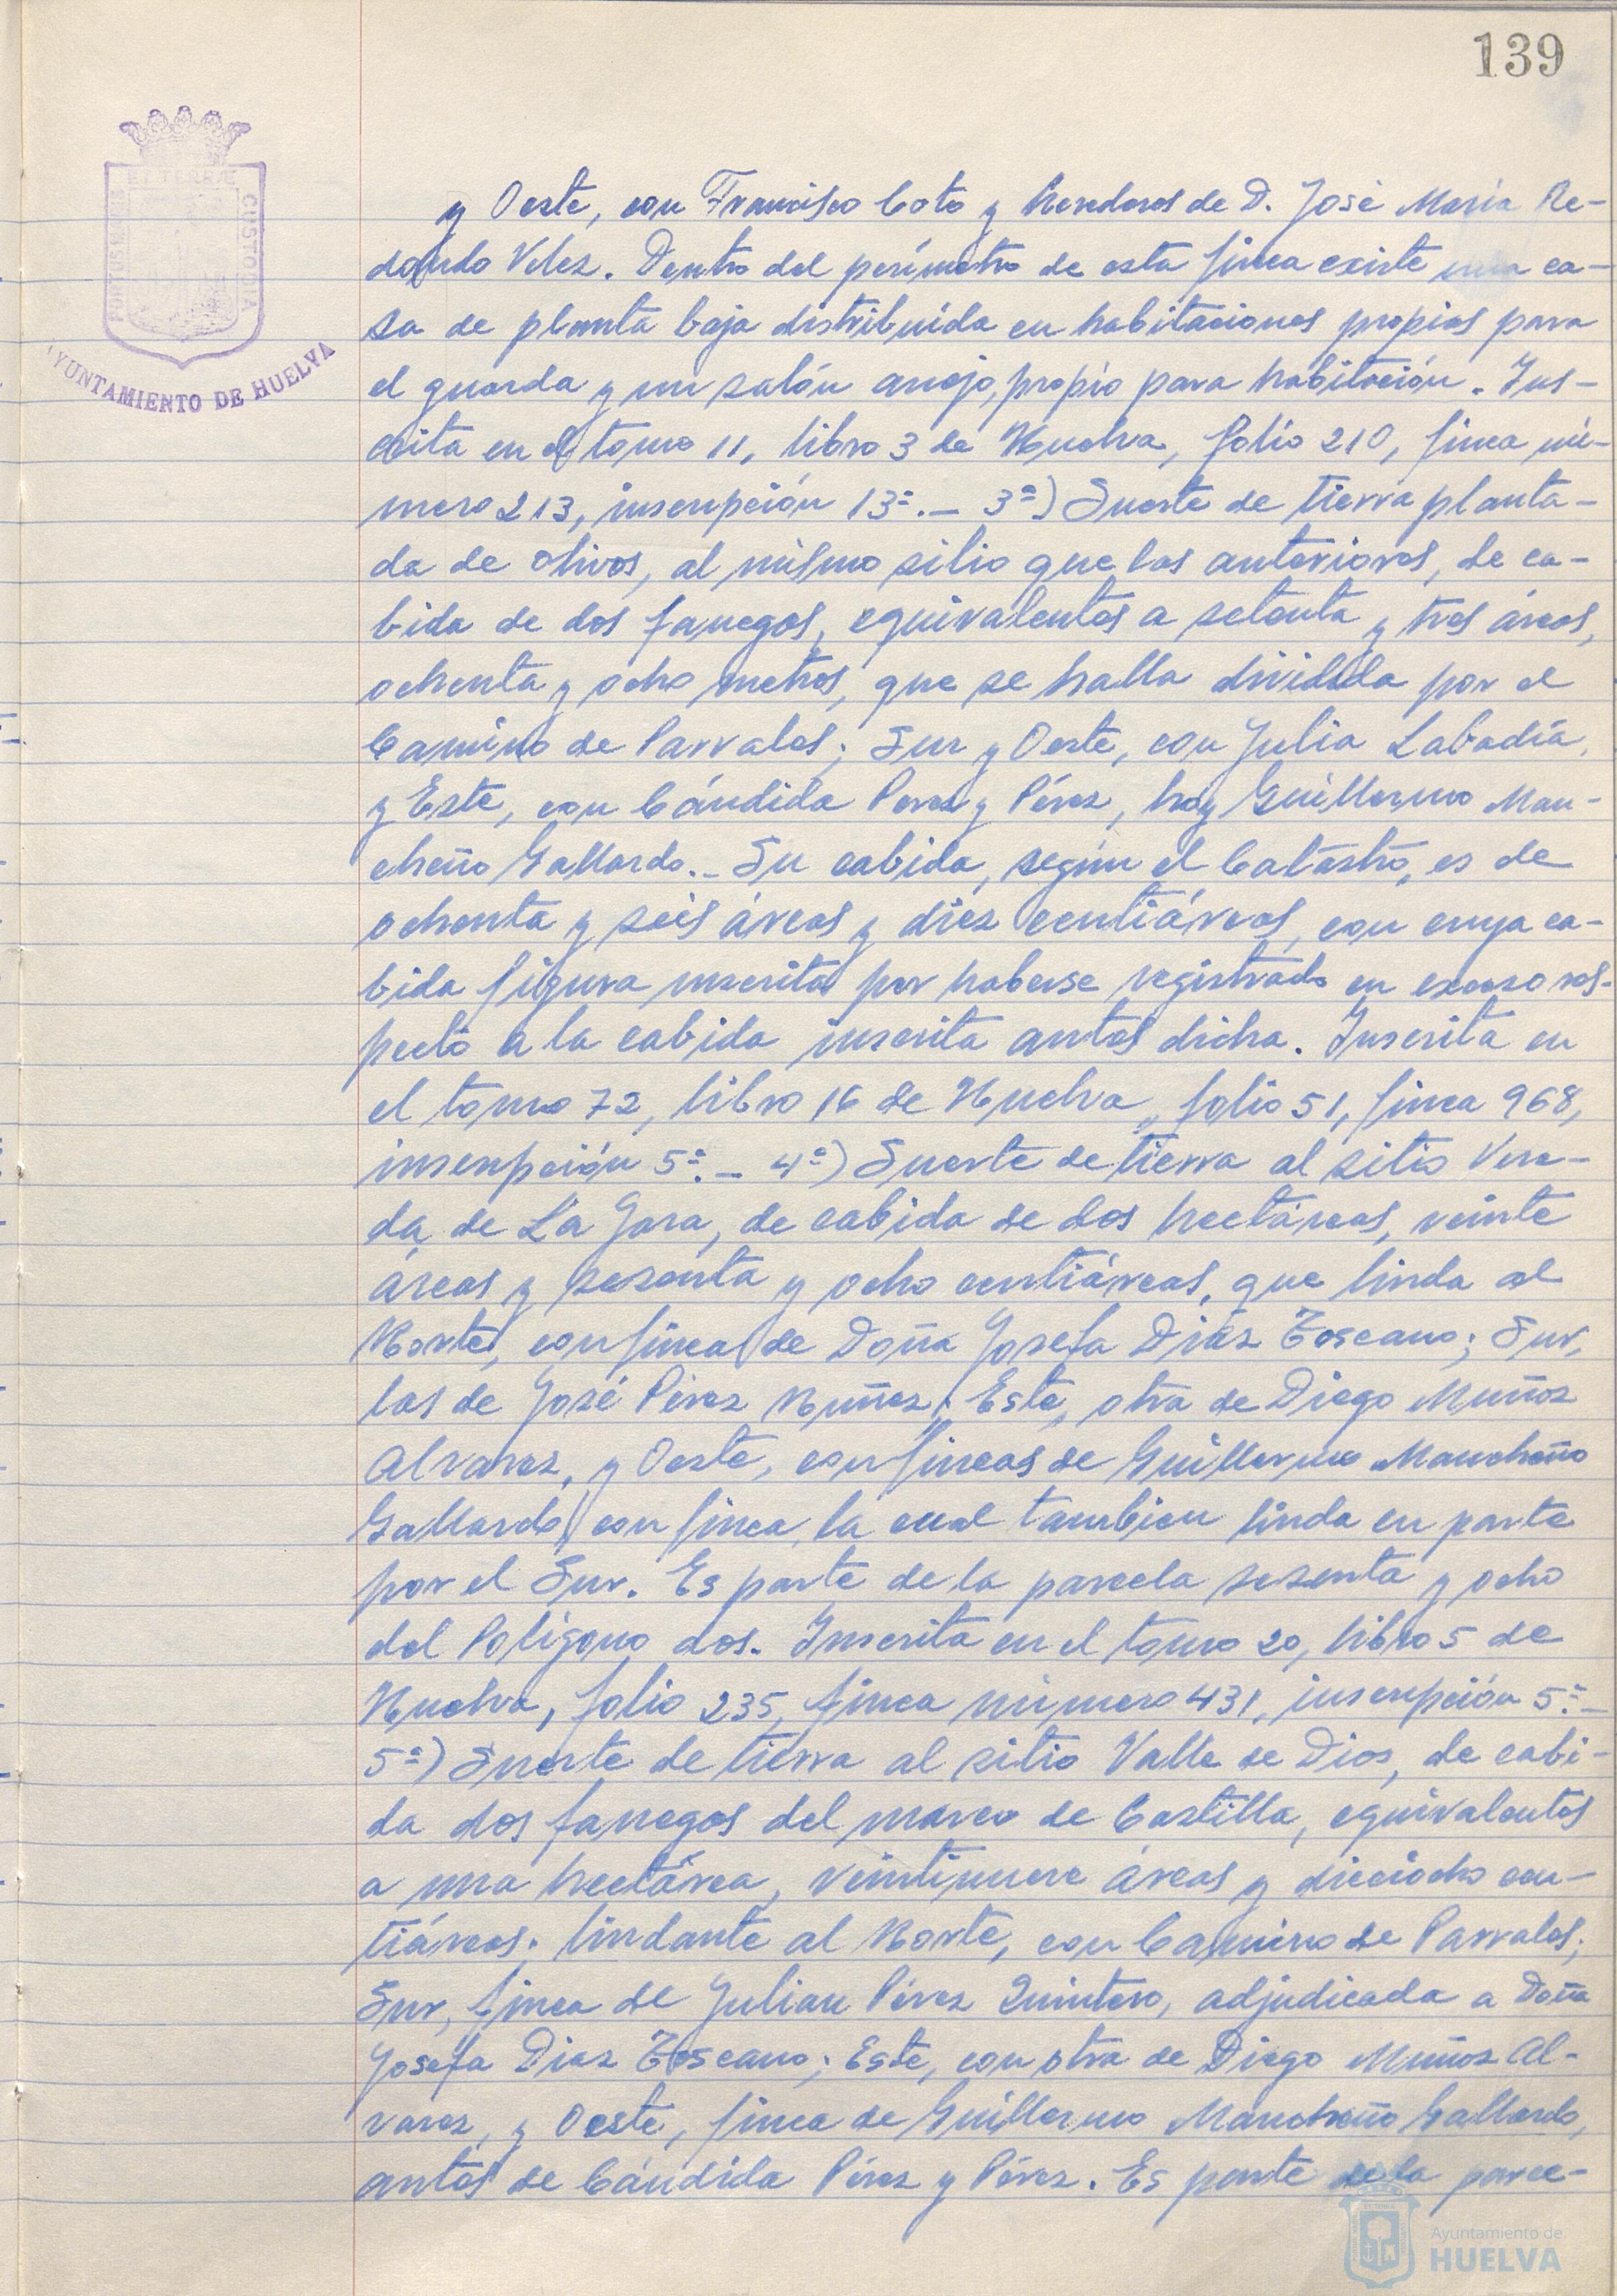 139
ET TERRÆ
PORTUS MARIS
CUSTODIA
AYUNTAMIENTO DE HUELVA
y Oeste, con Francisco Coto y herederos de D. José María Re-
dondo Velez. Dentro del perímetro de esta finca existe una ca-
sa de planta baja distribuída en habitaciones propias para
el guarda y un salón anejo, propio para habitación. Ins-
crita en el tomo 11, libro 3 de Huelva, folio 210, finca nú-
mero 213, inscripción 13ª.- 3ª) Suerte de tierra planta-
da de olivos, al mismo sitio que las anteriores, de ca-
bida de dos fanegas, equivalentes a setenta y tres áreas,
ochenta y ocho metros, que se halla dividida por el
Camino de Parrales; Sur y Oeste, con Julia Labadía,
y Este, con Cándida Perez y Pérez, hoy Guillermo Man-
cheño Gallardo.- Su cabida, según el Catastro, es de
ochenta y seis áreas y diez centiáreas, con cuya ca-
bida figura inscrita por haberse registrado en exceso res-
pecto a la cabida inscrita antes dicha. Inscrita en
el tomo 72, libro 16 de Huelva, folio 51, finca 968,
inscripción 5ª.- 4ª) Suerte de tierra al sitio Vere-
da de La Jara, de cabida de dos hectáreas, veinte
áreas y sesenta y ocho centiáreas, que linda al
Norte, con finca de Doña Josefa Diaz Toscano; Sur,
las de José Pérez Nuñez; Este, otra de Diego Muñoz
Alvarez, y Oeste, con fincas de Guillermo Mancheño
Gallardo, con finca, la cual tambien linda en parte
por el Sur. Es parte de la parcela sesenta y ocho
del Polígono dos. Inscrita en el tomo 20, libro 5 de
Huelva, folio 235, finca número 431, inscripción 5ª.-
5ª) Suerte de tierra al sitio Valle de Dios, de cabi-
da dos fanegas del marco de Castilla, equivalentes
a una hectárea, veintinueve áreas y dieciocho cen-
tiáreas; lindante al Norte, con Camino de Parrales;
Sur, finca de Julian Pérez Quintero, adjudicada a Doña
Josefa Diaz Toscano; Este, con otra de Diego Muñoz Al-
varez, y Oeste, finca de Guillermo Mancheño Gallardo,
antes de Cándida Pérez y Pérez. Es parte de la parce-
Ayuntamiento de
HUELVA